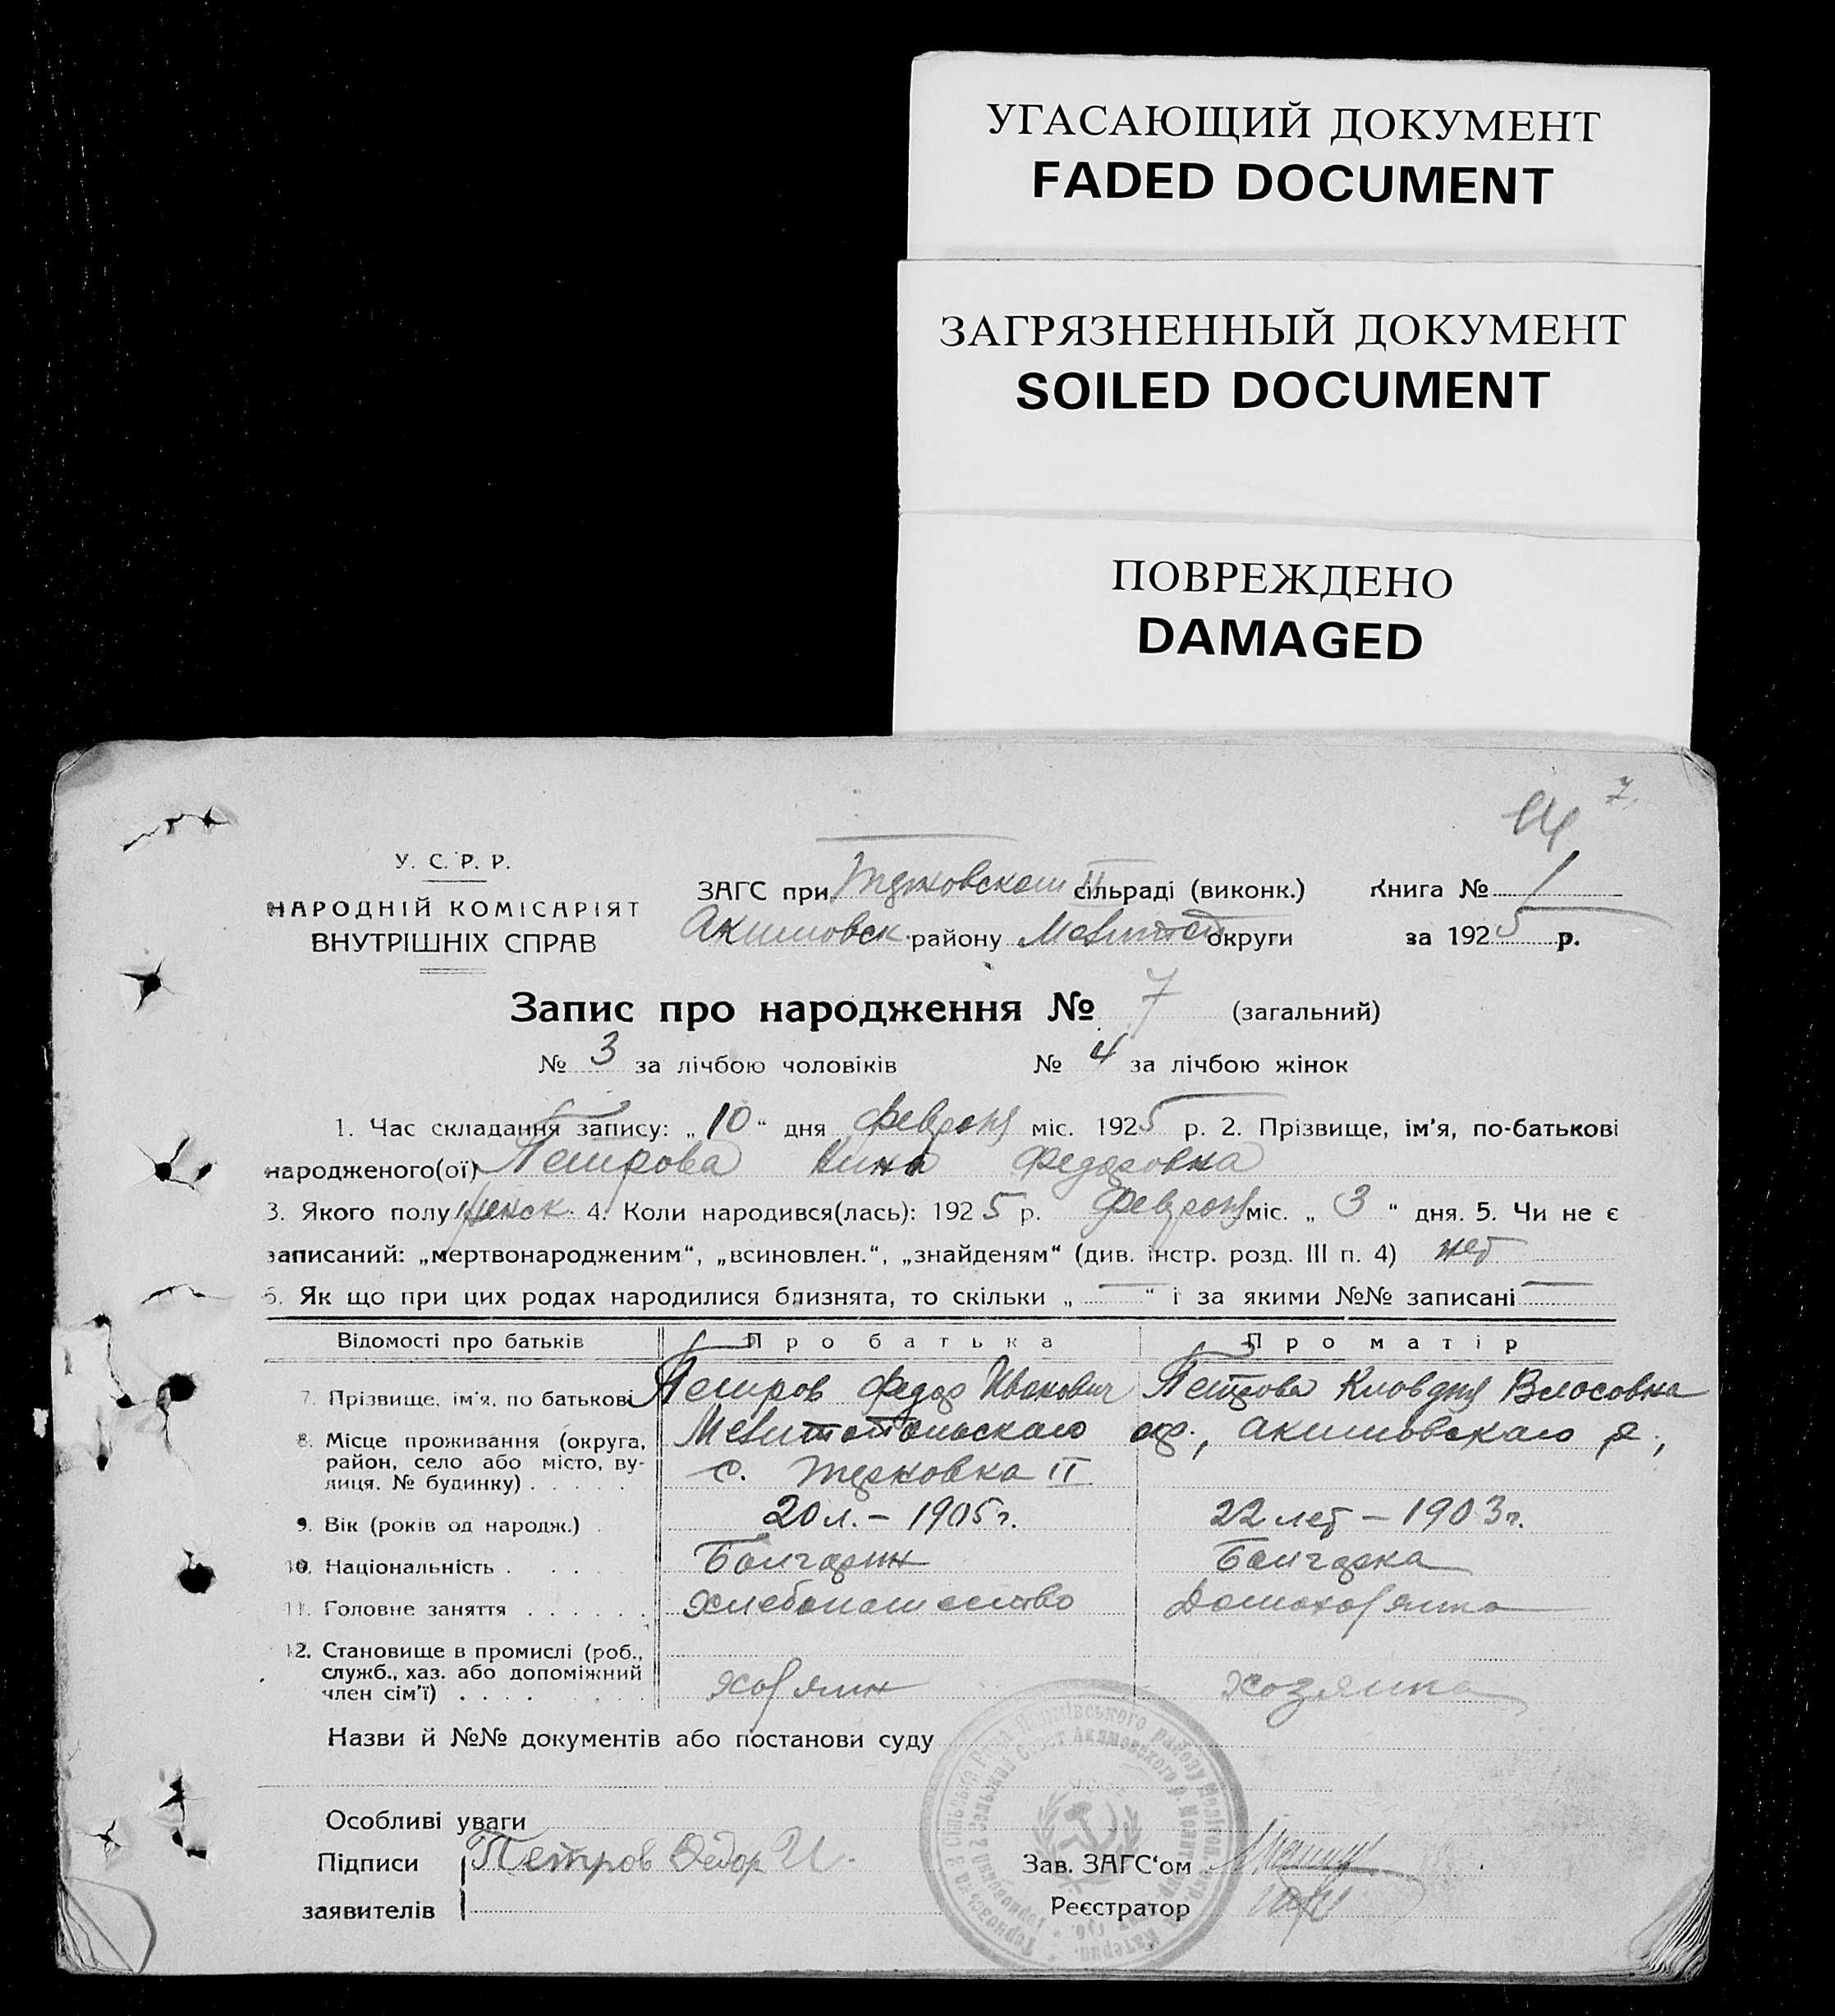 УГАСАЮЩИЙ ДОКУМЕНТ
FADED DOCUMENT
ЗАГРЯЗНЕННЫЙ ДОКУМЕНТ
SOILED DOCUMENT
ПОВРЕЖДЕНО
DAMAGED
7
У. С. Р. Р.
НАРОДНІЙ КОМІСАРІЯТ
ВНУТРІШНІХ СПРАВ
ЗАГС при Терновском II сільраді (виконк.) Книга № 1
Акимовск. району Мелитоп округи за 1925 р.
Запис про народження № 7 (загальний)
№ 3 за лічбою чоловіків № 4 за лічбою жінок
1. Час складання запису: „10“ дня февраля міс. 1925 р. 2. Прізвище, ім'я, по-батькові
народженого(ої) Петрова Нина Федоровна
3. Якого полу женск. 4. Коли народився(лась): 1925 р. февраля міс. „3“ дня. 5. Чи не є
записаний: „мертвонародженим“, „всиновлен.“, „знайденям“ (див. інстр. розд. III п. 4) нет
6. Як що при цих родах народилися близнята, то скільки „—“ і за якими №№ записані —
Відомості про батьків Про батька Про матір
7. Прізвище, ім'я, по батькові Петров Федор Иванович Петрова Клавдия Власовна
8. Місце проживання (округа, район, село або місто, вулиця, № будинку) . . . . . Мелитопольскаго окр., Акимовскаго р.,
с. Терновка II
9. Вік (років од народж.) . 20 л. – 1905 г. 22 лет – 1903 г.
10. Національність . . . . Болгарин Болгарка
11. Головне заняття . . . . . . Хлебопашество Домохозяйка
12. Становище в промислі (роб., служб., хаз. або допоміжний член сім'ї) . . . . Хозяин Хозяйка
Назви й №№ документів або постанови суду
Особливі уваги
Підписи Петров Федор И. Зав. ЗАГС'ом
заявителів Реєстратор